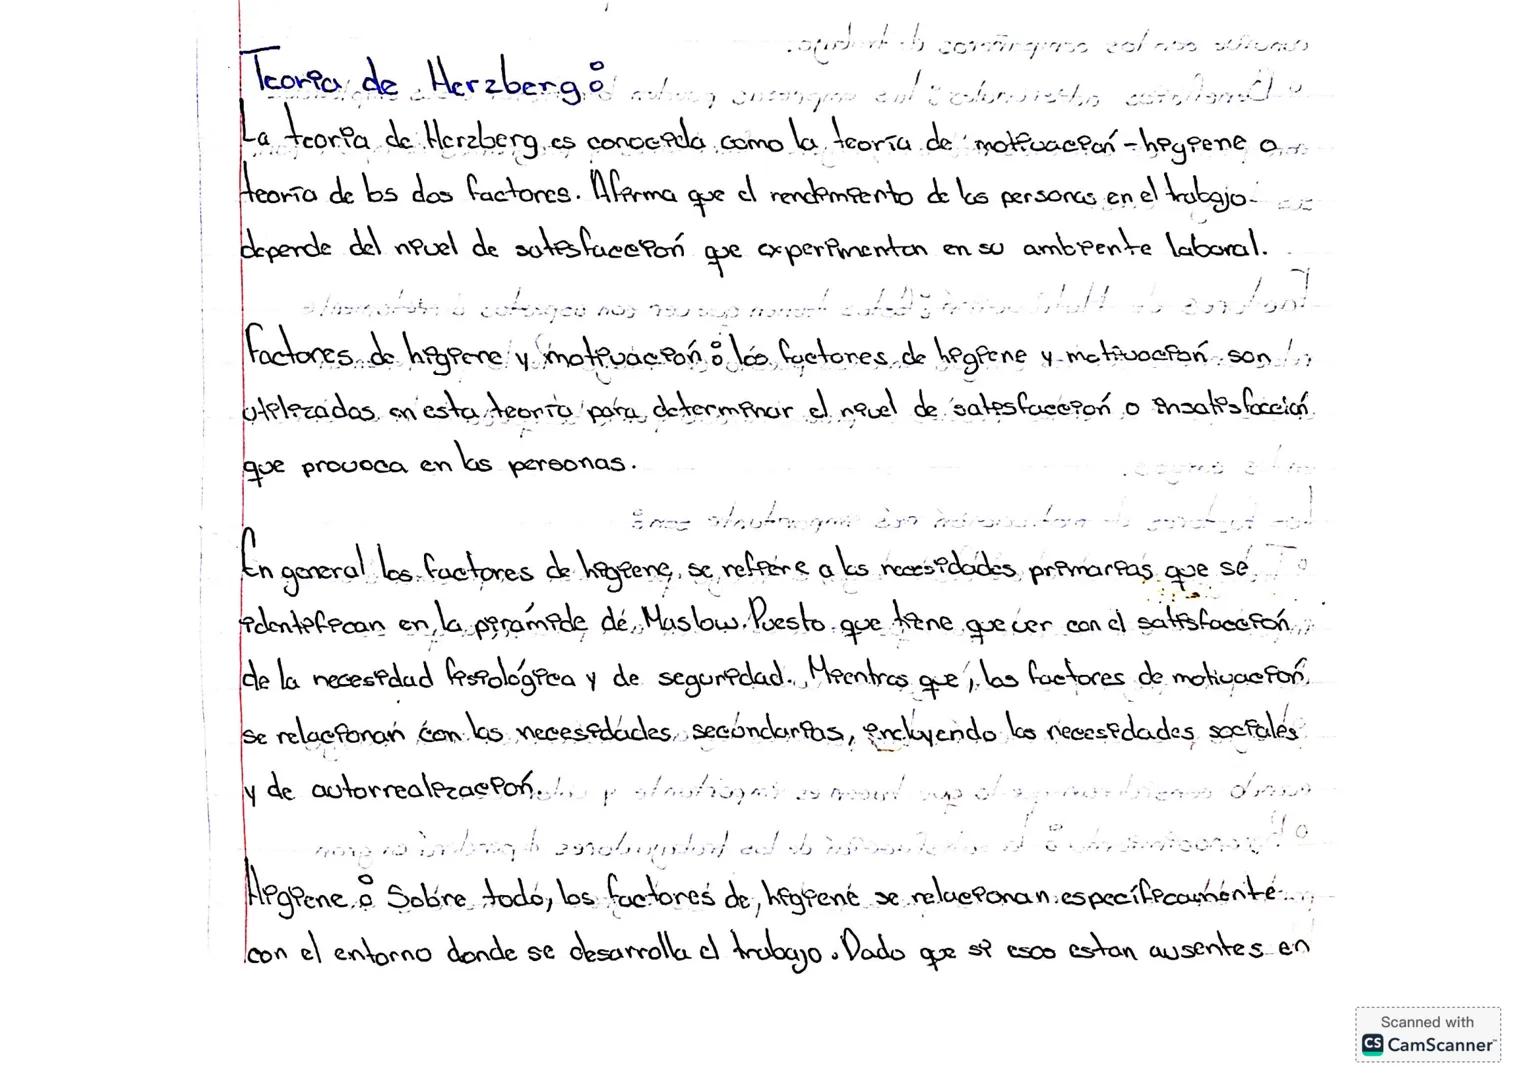 Teoria de Herzberg:
La teoria de Herzberg es conocida como la teoría de motivación-higiene o
teoría de los dos factores. Afirma que el rendimiento de las personas en el trabajo
depende del nivel de satisfacción que experimentan en su ambiente laboral.
Factores de higiene y motivación: los factores de higiene y motivación son
utilizados en esta teoría para determinar el nivel de satisfacción o insatisfacción
que provoca en las personas.
En general los factores de higiene, se refiere a las necesidades primarias que se
identifican en la pirámide de Maslow. Puesto que tiene que ver con el satisfacción
de la necesidad fisiológica y de seguridad. Mientras que, los factores de motivación,
se relacionan con las necesidades secundarias, incluyendo las necesidades sociales
y de autorrealización.
Higiene: Sobre todo, los factores de higiene se relacionan específicamente
con el entorno donde se desarrolla el trabajo. Dado que si esos estan ausentes en
Scanned with
CS CamScanner